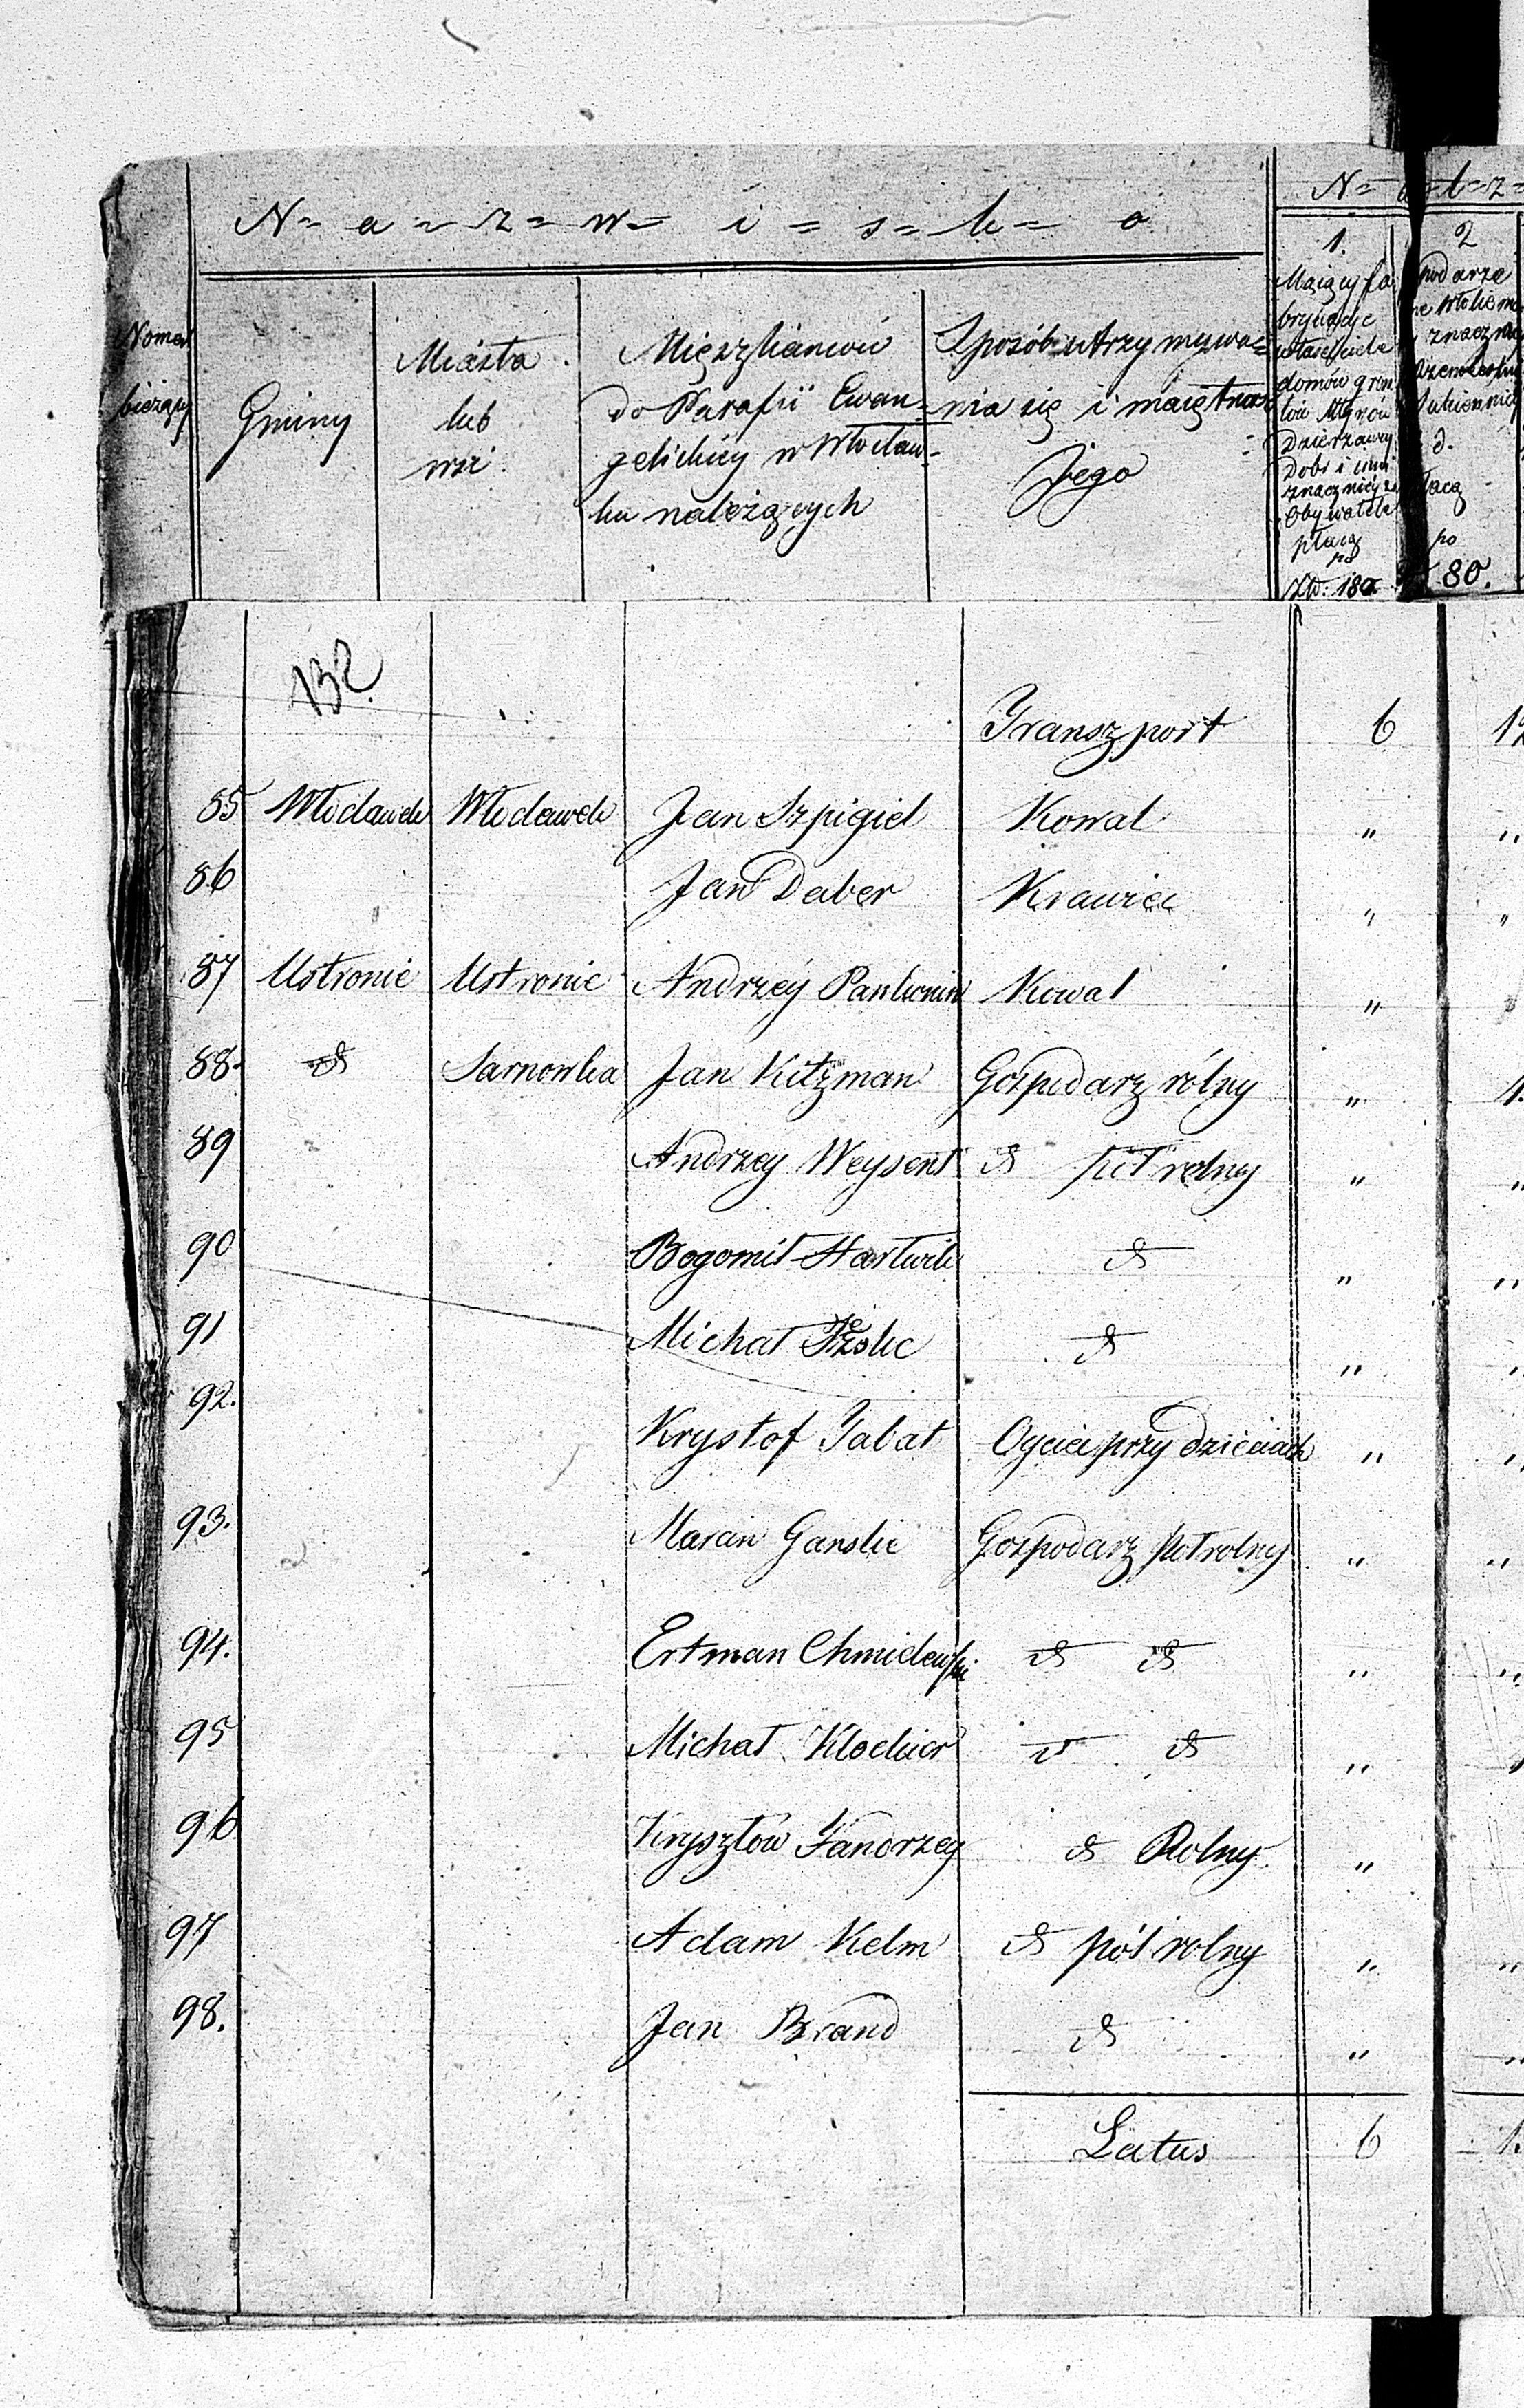 N= a= z= w= i= s= k= o
N= a= t= z=
Numer
bieżący
Gminy
Miasta
lub
wsi
Mięszkańców
do Parafii Ewan-
gelickiéy w Włocław-
ku należących
Sposób utrzymywa=
nia się i maiętnoś
Jego
1.
Maiący fa
brykacje
właściciele
domów grun
tów Młynów
Dzierzawcy
Dobr i inni
znacznieysi
Obywatele
płacą
po
Zło: 180
2
podarze
znaczn
d.
łacą
po
80.
132
Transzport 6 12
85 Włocławek Włocławek Jan Szpigiel Kowal " "
86 Jan Daber Krawiec " "
87 Ustronie Ustronie Andrzéy Kowal " "
88. d Sarnowka Jan Kitzman Gospodarz rólny " 1.
89 Andrzey Weysent d pół rolny " "
90 Bogomił Hartwik d " "
91 Michał d " "
92. Krystof Jabat Oyciec przy dzieciach " "
93. Marcin Ganske Gospodarz połrolny " "
94. Ertman Chmielewski d d " "
95 Michał Klocker d d "
96 Krysztow Jandrzey d Rolny "
97 Adam Kelm d pół rolny " "
98. Jan Brand d " "
Latus 6 1.